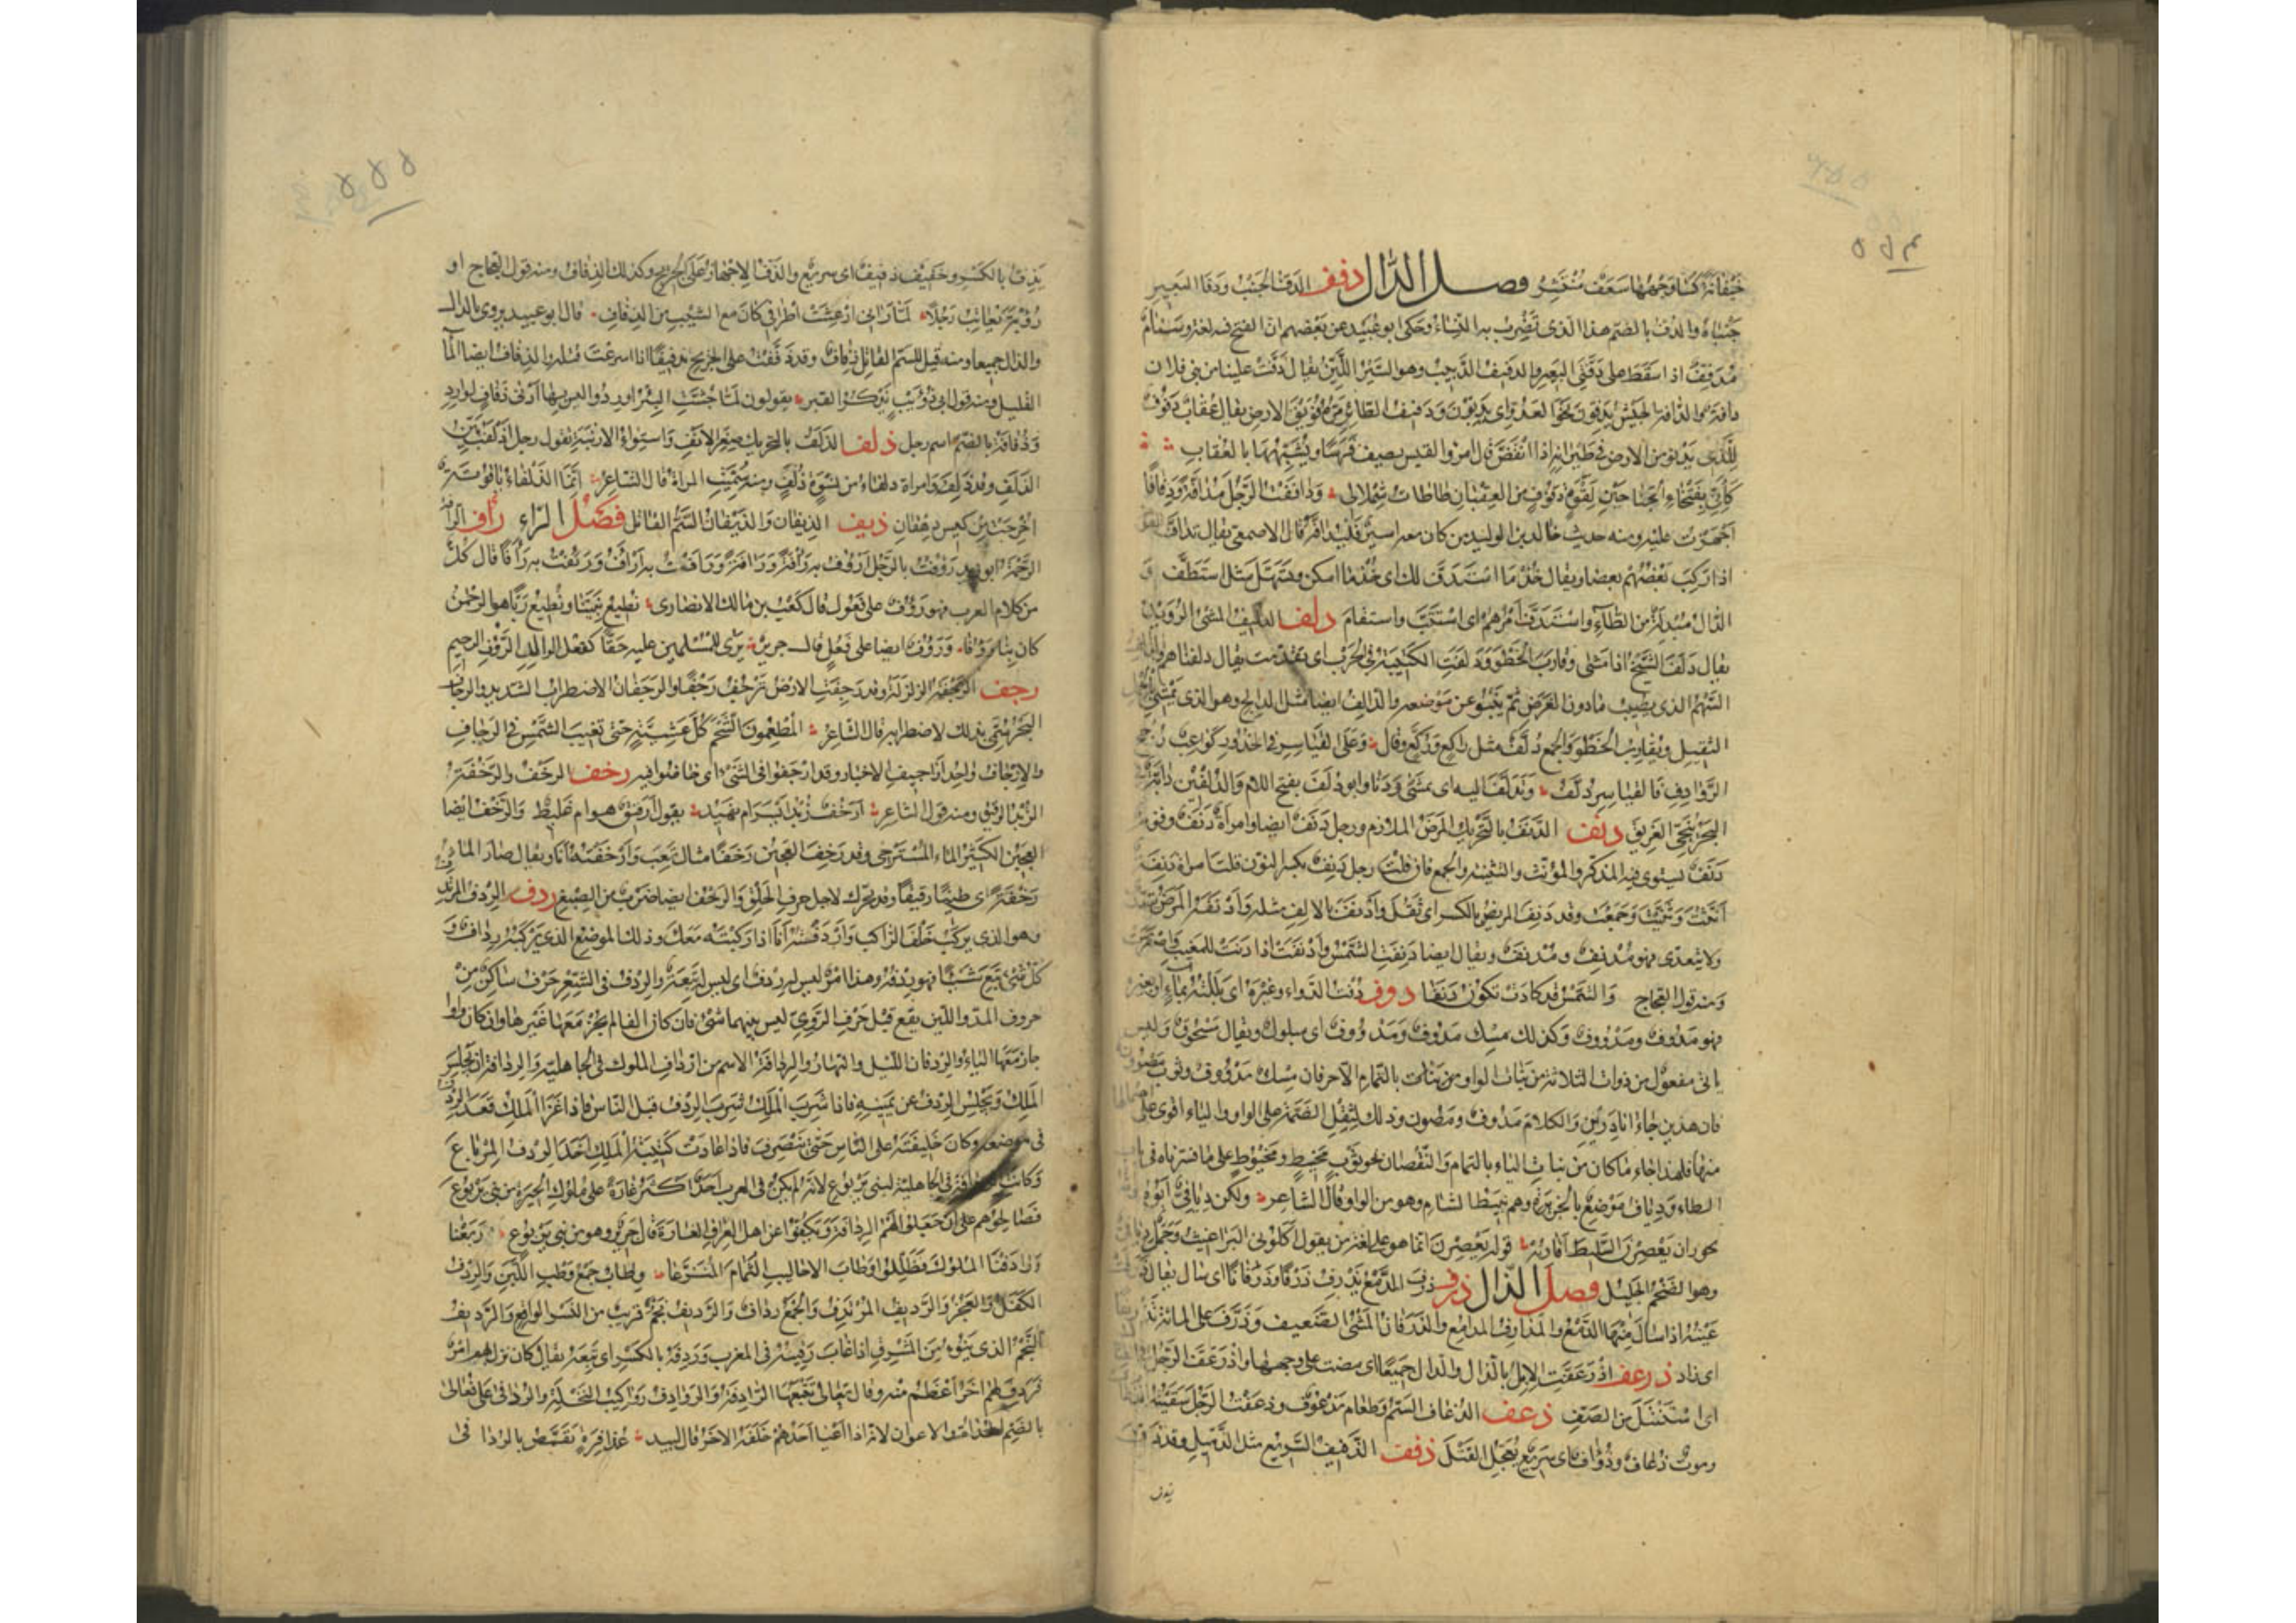 خيفانة كسا وجهها سعف منتشر فصل الدال دفف الدف الجنب ودفا البعير
جنباه والدف بالضم هذا الذى تضرب به النساء وحكى ابو عبيد عن بعضهم ان الفتح فيه لغة وسنام
مدفف اذا سقط على دفتى البعير والدفيف الدبيب وهو السير اللين يقال دفت علينا من بنى فلان
دافة والدافة الجيش يدفون نحو العدو اى يدبون ودفيف الطائر مره فويق الارض يقال عقاب دفوف
للذى يدنو من الارض فى طيرانه اذا انقض قال امرؤ القيس يصف فرسا ويشبهها بالعقاب
كأنى بفتخاء الجناحين لقوة دفوف من العقبان طاطات شملالى ودافقت الرجل مدافة ودفافا
اجهزت عليه ومنه حديث خالد بن الوليد من كان معه اسير فليدافه قال الاصمعى يقال تداف القوم
اذا ركب بعضهم بعضا ويقال خذ ما استدف لك اى خذ ما امكن وتهيل مثل استطف و
الدال مبدلة من الطاء واستدف امرهم اى استتب واستقام دلف الدليف المشى الرويد
يقال دلف الشيخ اذا مشى وقارب الخطو ودلفت الكتيبة فى الحرب اى تقدمت يقال دلفناهم والدالف
السهم الذى يصيب مادون الغرض ثم ينبو عن موضعه والدالف ايضا مثل الدالح وهو الذى يمشى بالحمل
الثقيل ويقارب الخطو والجمع دلف مثل راكع وركع وقال وعلى القياسر فى الخدور كواعب رجح
الروادف فالقياسر دلف وتدلف اليه اى تمشى ودنا وابو دلف بفتح اللام والدلفين دابة فى
البحر تنجى الغريق دنف الدنف بالتحريك المرض الملازم ورجل دنف ايضا وامراة دنف وقوم
دنف يستوى فيه المذكر والمؤنث والتثنية والجمع فان قلت رجل دنف بكسر النون قلت امراة دنفة
انثت وثنيت وجمعت وقد دنف المريض بالكسر اى ثقل وادنف بالالف مثله وادنفه المرض يتعدى
ولا يتعدى فهو مدنف ومدنف ويقال ايضا دنفت الشمس وادنفت اذا دنت للمغيب واصفرت
ومنه قول العجاج والشمس قد كادت تكون دنفا دوف دفت الدواء وغيره اى بللته بماء او بغيره
فهو مدوف ومدووف وكذلك مسك مدوف ومدووف اى مبلول ويقال مسحوق وليس
ياتى مفعول من ذوات الثلاثة من بنات الواو من بنات بالتمام الا حرفان مسك مدووف وثوب مصوون
فان هذين جاءا نادرين والكلام مدوف ومصون وذلك لثقل الضمة على الواو والياء اقوى على احتمالها
منها فلهذا جاء ماكان من بنات الياء بالتمام والنقصان نحو ثوب مخيط ومخيوط على ما فسرناه فى باب
الطاء ودياف موضع بالجزيرة وهم نبيط الشام وهو من الواو قال الشاعر ولكن ديافى ابوه وامه
بحوران يعصرن السليط اقاربه قوله يعصرن انما هو على لغة من يقول اكلونى البراغيث وجمل ديافى
وهو الضخم الجليل فصل الذال ذرف ذرف الدمع يذرف ذرفا وذرفانا اى سال يقال ذرفت
عينه اذا سال منها الدمع والمذارف المدامع والذرفان المشى الضعيف وذرف على المائة تذريفا
اى زاد ذرعف اذرعفت الابل بالذال والدال جميعا اى مضت على وجهها واذرعف الرجل فى القتال
اى استنتل من الصف ذعف الذعاف السم وطعام مذعوف وذعفت الرجل سقيته الذعاف
وموت ذعاف وذؤاف اى سريع يعجل القتل ذفف الذفيف السريع مثل الذميل وقد ذف
يذف
يذف بالكسر وخفيف ذفيف اى سريع والذف الاجهاز على الجريح وكذلك الذفاف ومنه قول العجاج او
رؤبة يعاتب رجلا لما رانى ارعشت اطرافى كان مع الشيب من الذفاف قال ابو عبيد يروى بالدال
والذال جميعا ومنه قيل للسم القاتل ذفاف وقد ذففت على الجريح تذفيفا اذا اسرعت قتله والذفاف ايضا الماء
القليل ومنه قول ابى ذؤيب يذكر القبر يقولون لما جشت البئر اوردوا وليس بها ادنى ذفاف لوارد
وذفافة بالضم اسم رجل ذلف الذلف بالتحريك صغر الانف واستواء الارنبة يقول رجل اذلف بين
الذلف وقد ذلف وامراة ذلفاء من نسوة ذلف ومنه سميت المراة قال الشاعر انما الذلفاء ياقوتة
اخرجت من كيس دهقان ذيف الذيفان والذيفان السم القاتل فصل الراء رأف الرافة
الرحمة ابو زيد رؤفت بالرجل ارؤف به رافة ورآفة ورافت به اراف ورئفت به رافا قال كل
من كلام العرب فهو رؤف على فعول قال كعب بن مالك الانصارى نطيع نبينا ونطيع ربا هو الرحمن
كان بنا رؤفا ورؤف ايضا على فعل قال جرير يرى للمسلمين عليه حقا كفعل الوالد الرؤف الرحيم
رجف الرجفة الزلزلة وقد رجفت الارض ترجف رجفا والرجفان الاضطراب الشديد والرجاف
البحر سمى بذلك لاضطرابه قال الشاعر المطعمون الشحم كل عشية حتى تغيب الشمس فى الرجاف
والارجاف واحد اراجيف الاخبار وقد ارجفوا فى الشئ اى خاضوا فيه رخف الرخف والرخفة
الزبد الرقيق ومنه قول الشاعر ارخف زبد ايسر ام نهيد يقول ارقيق هو ام غليظ والرخف ايضا
العجين الكثير الماء المسترخى وقد رخف العجين رخفا مثال تعب تعبا وارخفته انا ويقال صار الماء
رخفة اى طينا رقيقا وقد يحرك لاجل حرف الحلق والرخف ايضا ضرب من الصبغ ردف الردف المرتدف
وهو الذى يركب خلف الراكب واردفته انا اذا اركبته معك وذلك الموضع الذى يركبه رداف و
كل شئ تبع شيئا فهو ردفه وهذا امر ليس له ردف اى ليس له تبعة والردف فى الشعر حرف ساكن من
حروف المد واللين يقع قبل حرف الروى ليس بينهما شئ فان كان الفا لم يجز معها غيرها وان كان واوا
جاز معها الياء والردفان الليل والنهار والردافة الاسم من ارداف الملوك فى الجاهلية والردافة ان يجلس
الملك ويجلس الردف عن يمينه فاذا شرب الملك شرب الردف قبل الناس فاذا غزا الملك قعد الردف
فى موضعه وكان خليفته على الناس حتى ينصرف فاذا عادت كتيبة الملك اخذ الردف المرباع
وكانت الردافة فى الجاهلية لبنى يربوع لانه لم يكن فى العرب احد اكثر غارة على ملوك الحيرة من بنى يربوع
فصالحوهم على ان جعلوا لهم الردافة ويكفوا عن اهل العراق الغارة قال جرير وهو من بنى يربوع ربعنا
واردفنا الملوك فظللوا وطاب الاحاليب الثمام المنزعا وطاب جمع وطب اللبن والردف
الكفل والعجز والرديف المرتدف والجمع رداف والرديف نجم قريب من النسر الواقع والرديف
النجم الذى ينوء من المشرق اذا غاب رقيبه فى المغرب وردفه بالكسر اى تبعه يقال كان نزل بهم امر
فردف لهم اخر اعظم منه وقال تعالى تتبعها الرادفة والروادف رواكيب النخلة والردافى على فعالى
بالضم الحداة والاعوان لانه اذا اعيا احدهم خلفه الاخر قال لبيد عذافرة تقمص بالردافى